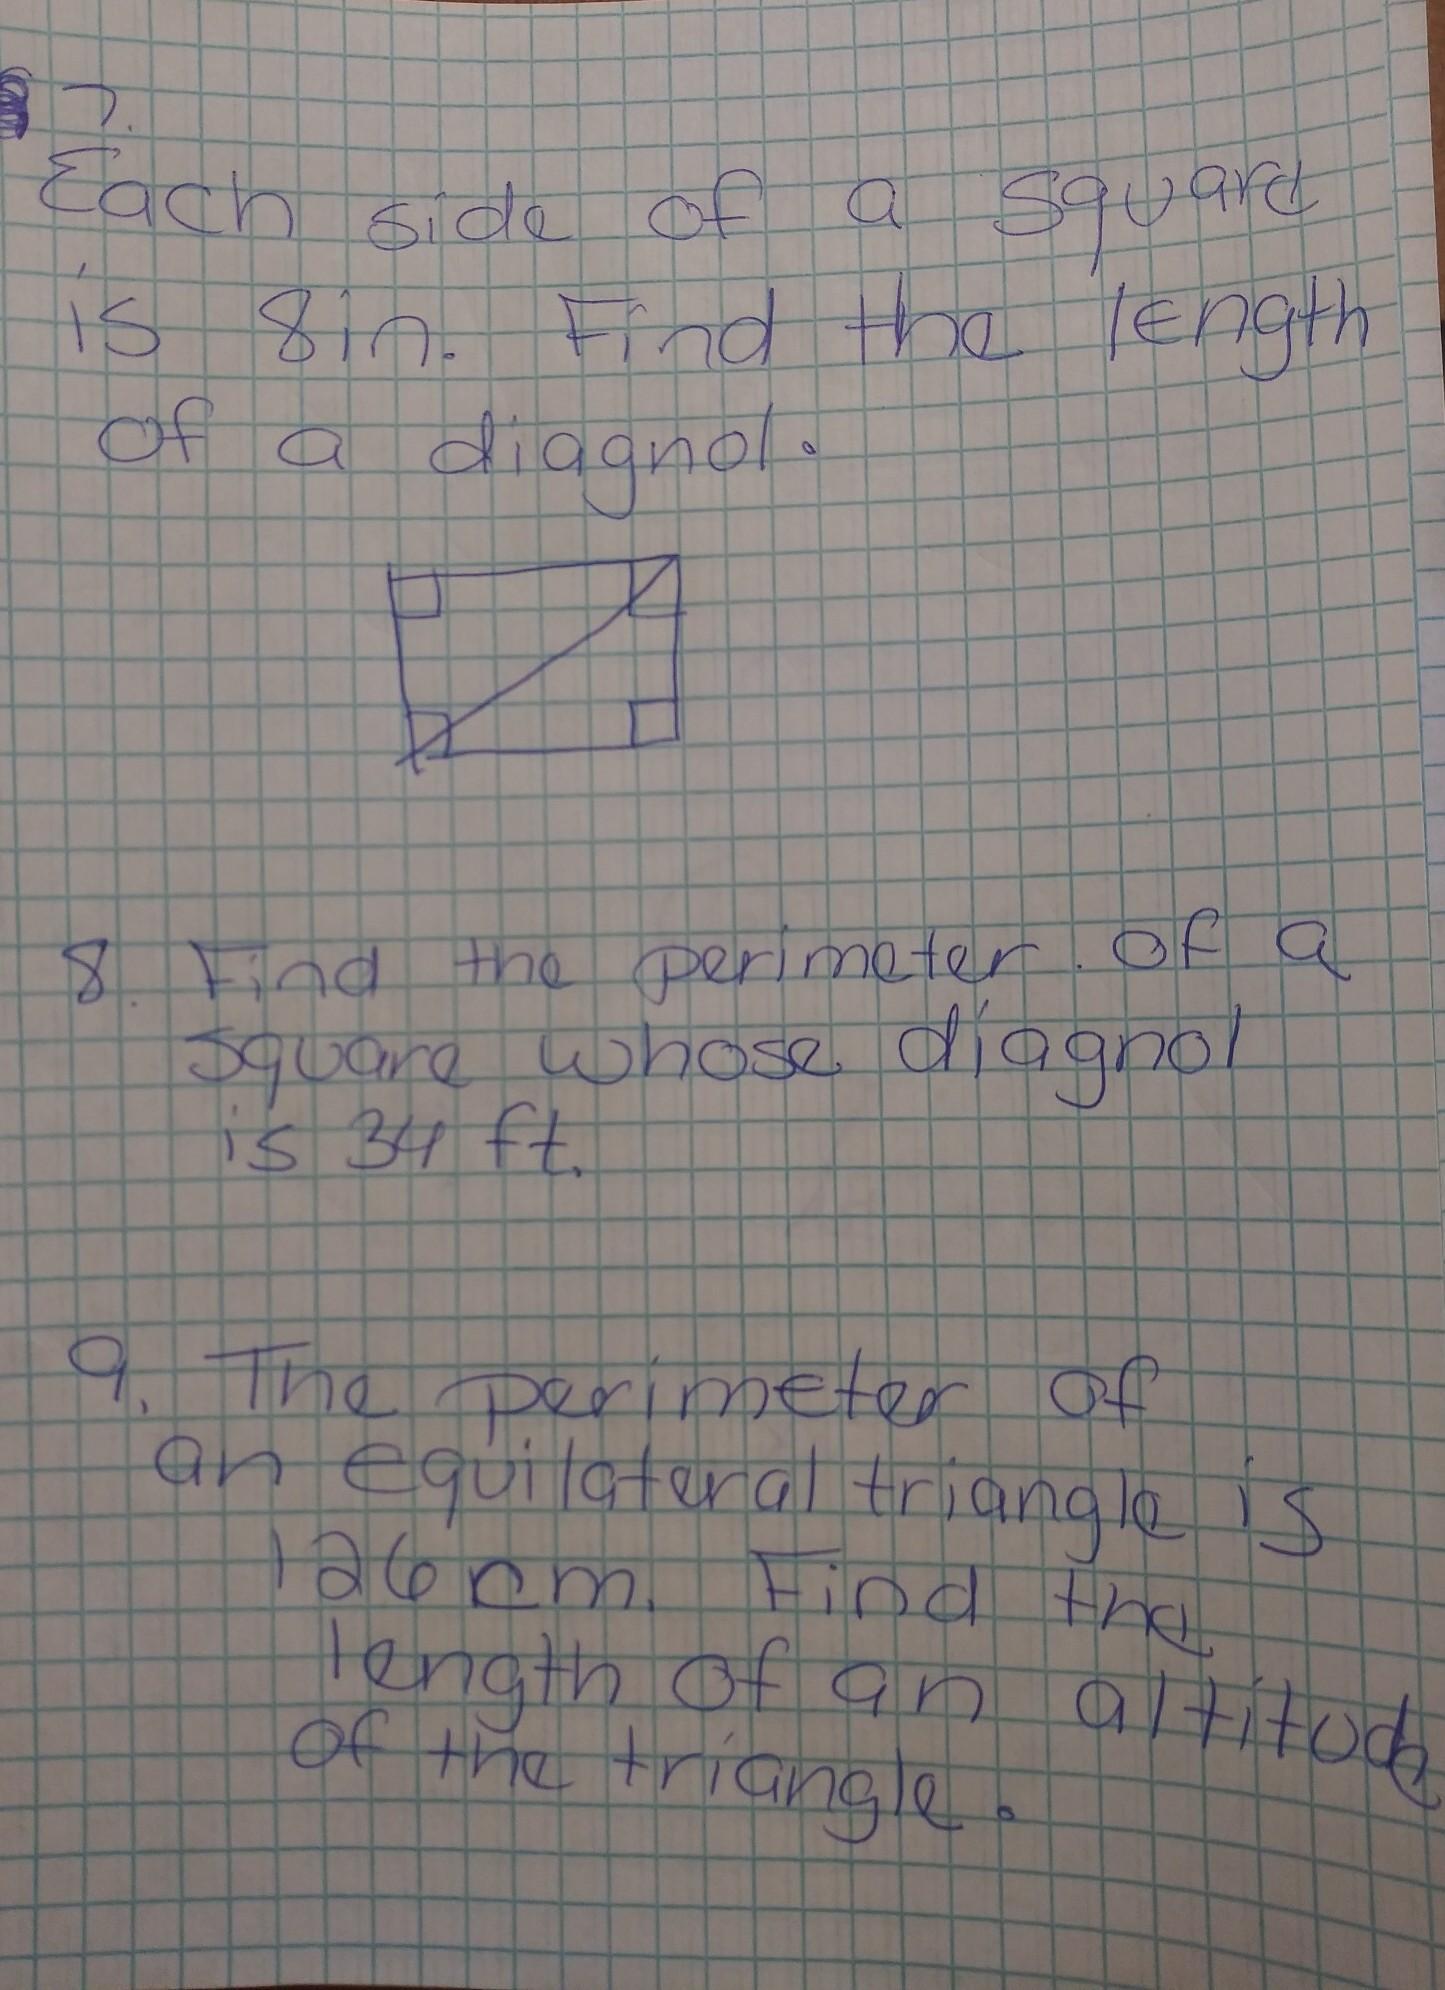 7.
Each side of a square
is 8in. Find the length
of a diagnol.
8. Find the perimeter of a
square whose diagnol
is 34 ft.
9. The perimeter of
an equilateral triangle is
126 cm. Find the
length of an altitude
of the triangle.